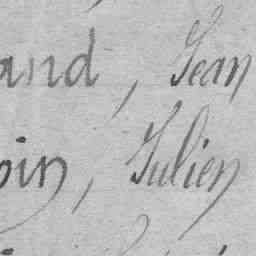 and, Jean
oin, Julien